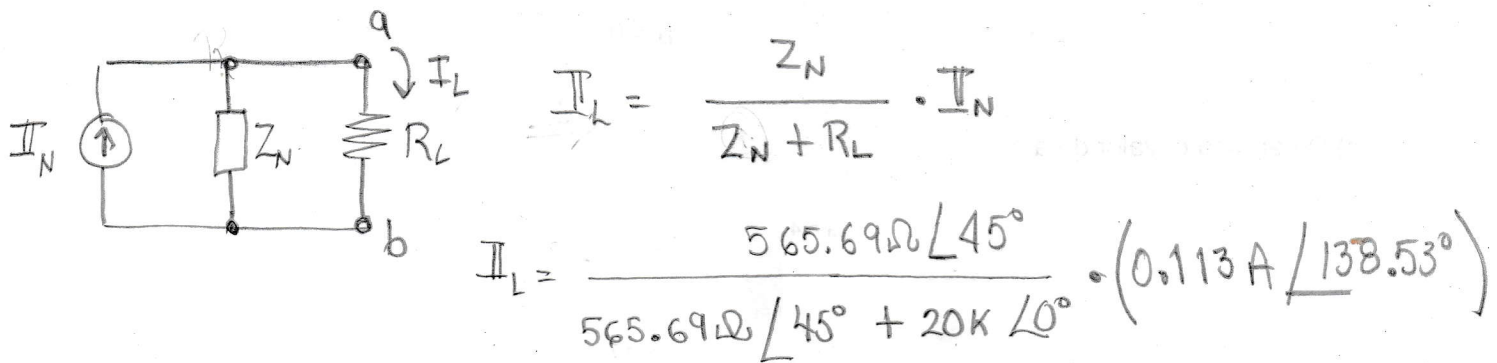 a
I_L
I_N
Z_N
R_L
b
I_L = Z_N / (Z_N + R_L) · I_N
I_L = 565.69Ω∠45° / (565.69Ω∠45° + 20K∠0°) · (0.113A∠138.53°)